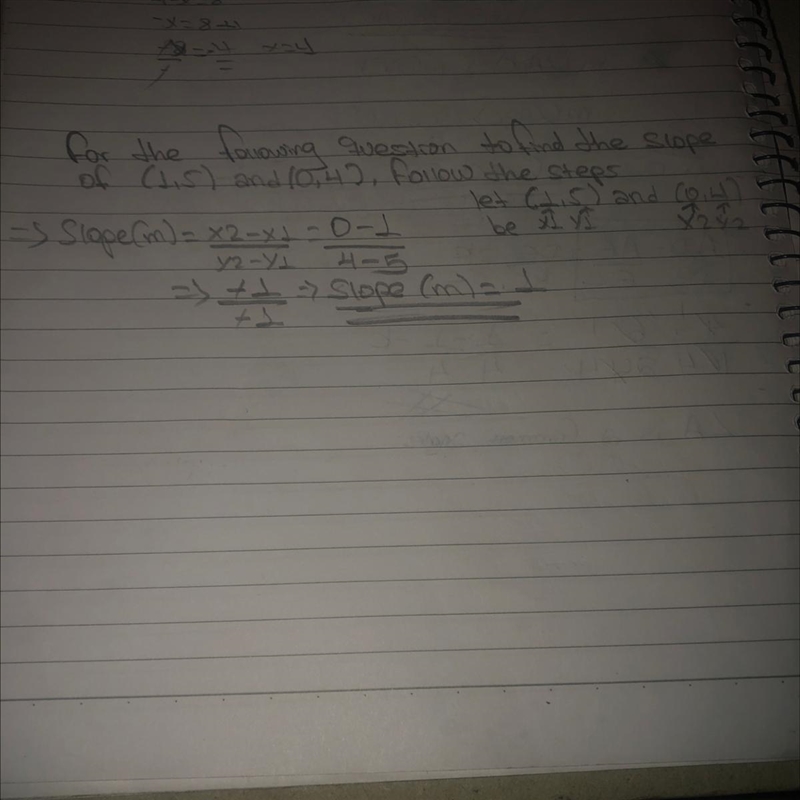 -x=8-4
=-4 x=4
For the following question to find the slope
of (1,5) and (0,4), follow the steps
let (1,5) and (0,4)
be x1 y1 x2 y2
=> Slope(m) = x2-x1/y2-y1 = 0-1/4-5
=> -1/-1 => Slope (m) = 1